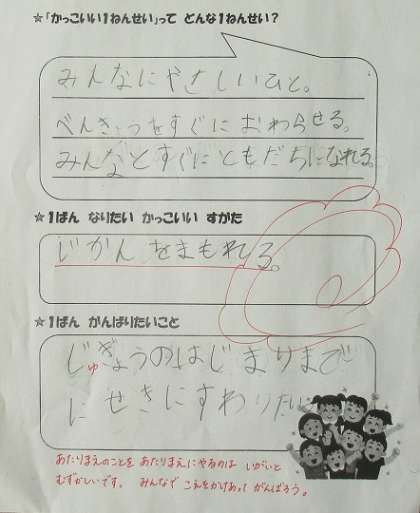 ★「かっこいい1ねんせい」って どんな1ねんせい?
みんなにやさしいひと。
べんきょうをすぐに おわらせる。
みんなとすぐにともだちになれる。
★1ばん なりたい かっこいい すがた
じかんをまもれる。
★1ばん がんばりたいこと
じゅぎょうのはじまりまで
に せきにすわりたい
あたりまえのことを あたりまえにやるのは いがいと
むずかしいです。 みんなで こえをかけあって がんばろう。